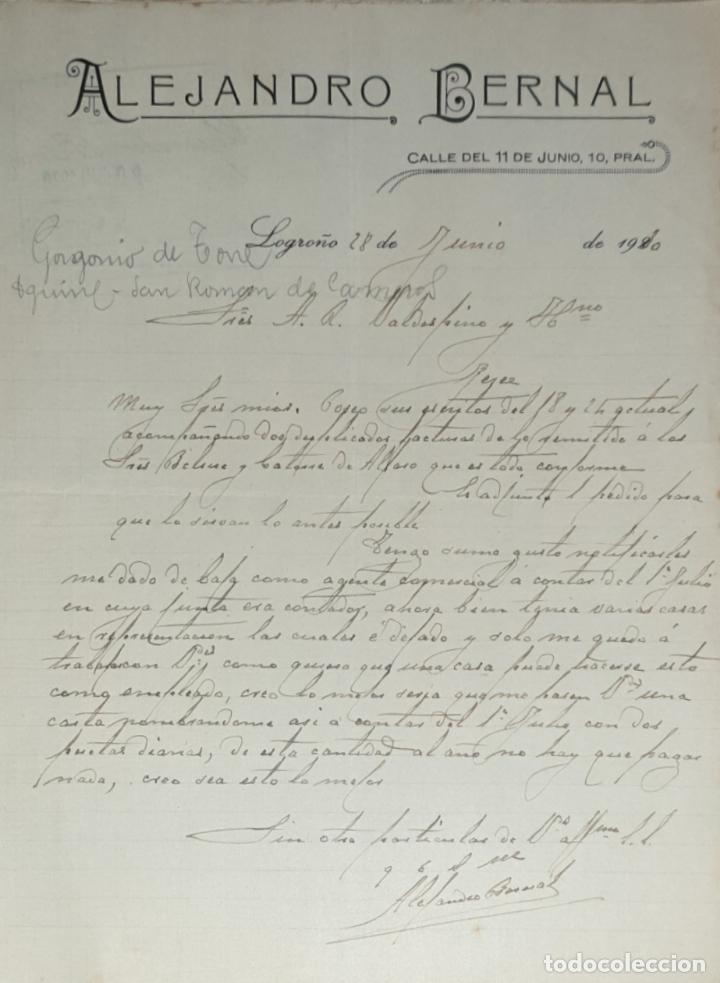 ALEJANDRO BERNAL
CALLE DEL 11 DE JUNIO, 10, PRAL.
Logroño 28 de Junio de 19
Gorgonio de Torre
San Roman de Cameros
Sres A. R. Valdespino y Hno
Jerez
Muy Sres mios. Poseo sus escritos del 18 y 24 actual y
acompañando dos duplicados facturas de lo remitido á los
Sres y de Alfaro que es todo conforme
Es adjunto 1 pedido para
que lo sirvan lo antes posible
Tengo sumo gusto notificarles
me e dado de baja como agente comercial á contar del 1º Julio
en cuya junta era contador, ahora bien tenia varias casas
en representacion las cuales é dejado y solo me quedo á
trabajar con Vdes y como quiera que una casa puede hacerse esto
como empleado, creo lo mejor seria que me pasen Vdes una
carta nombrandome asi a contar del 1º Julio con dos
pesetas diarias, de esta cantidad al año no hay que pagar
nada, creo sea esto lo mejor
Sin otro particular de Vds affmo s.s.
q b s m
Alejandro Bernal
todocoleccion.net